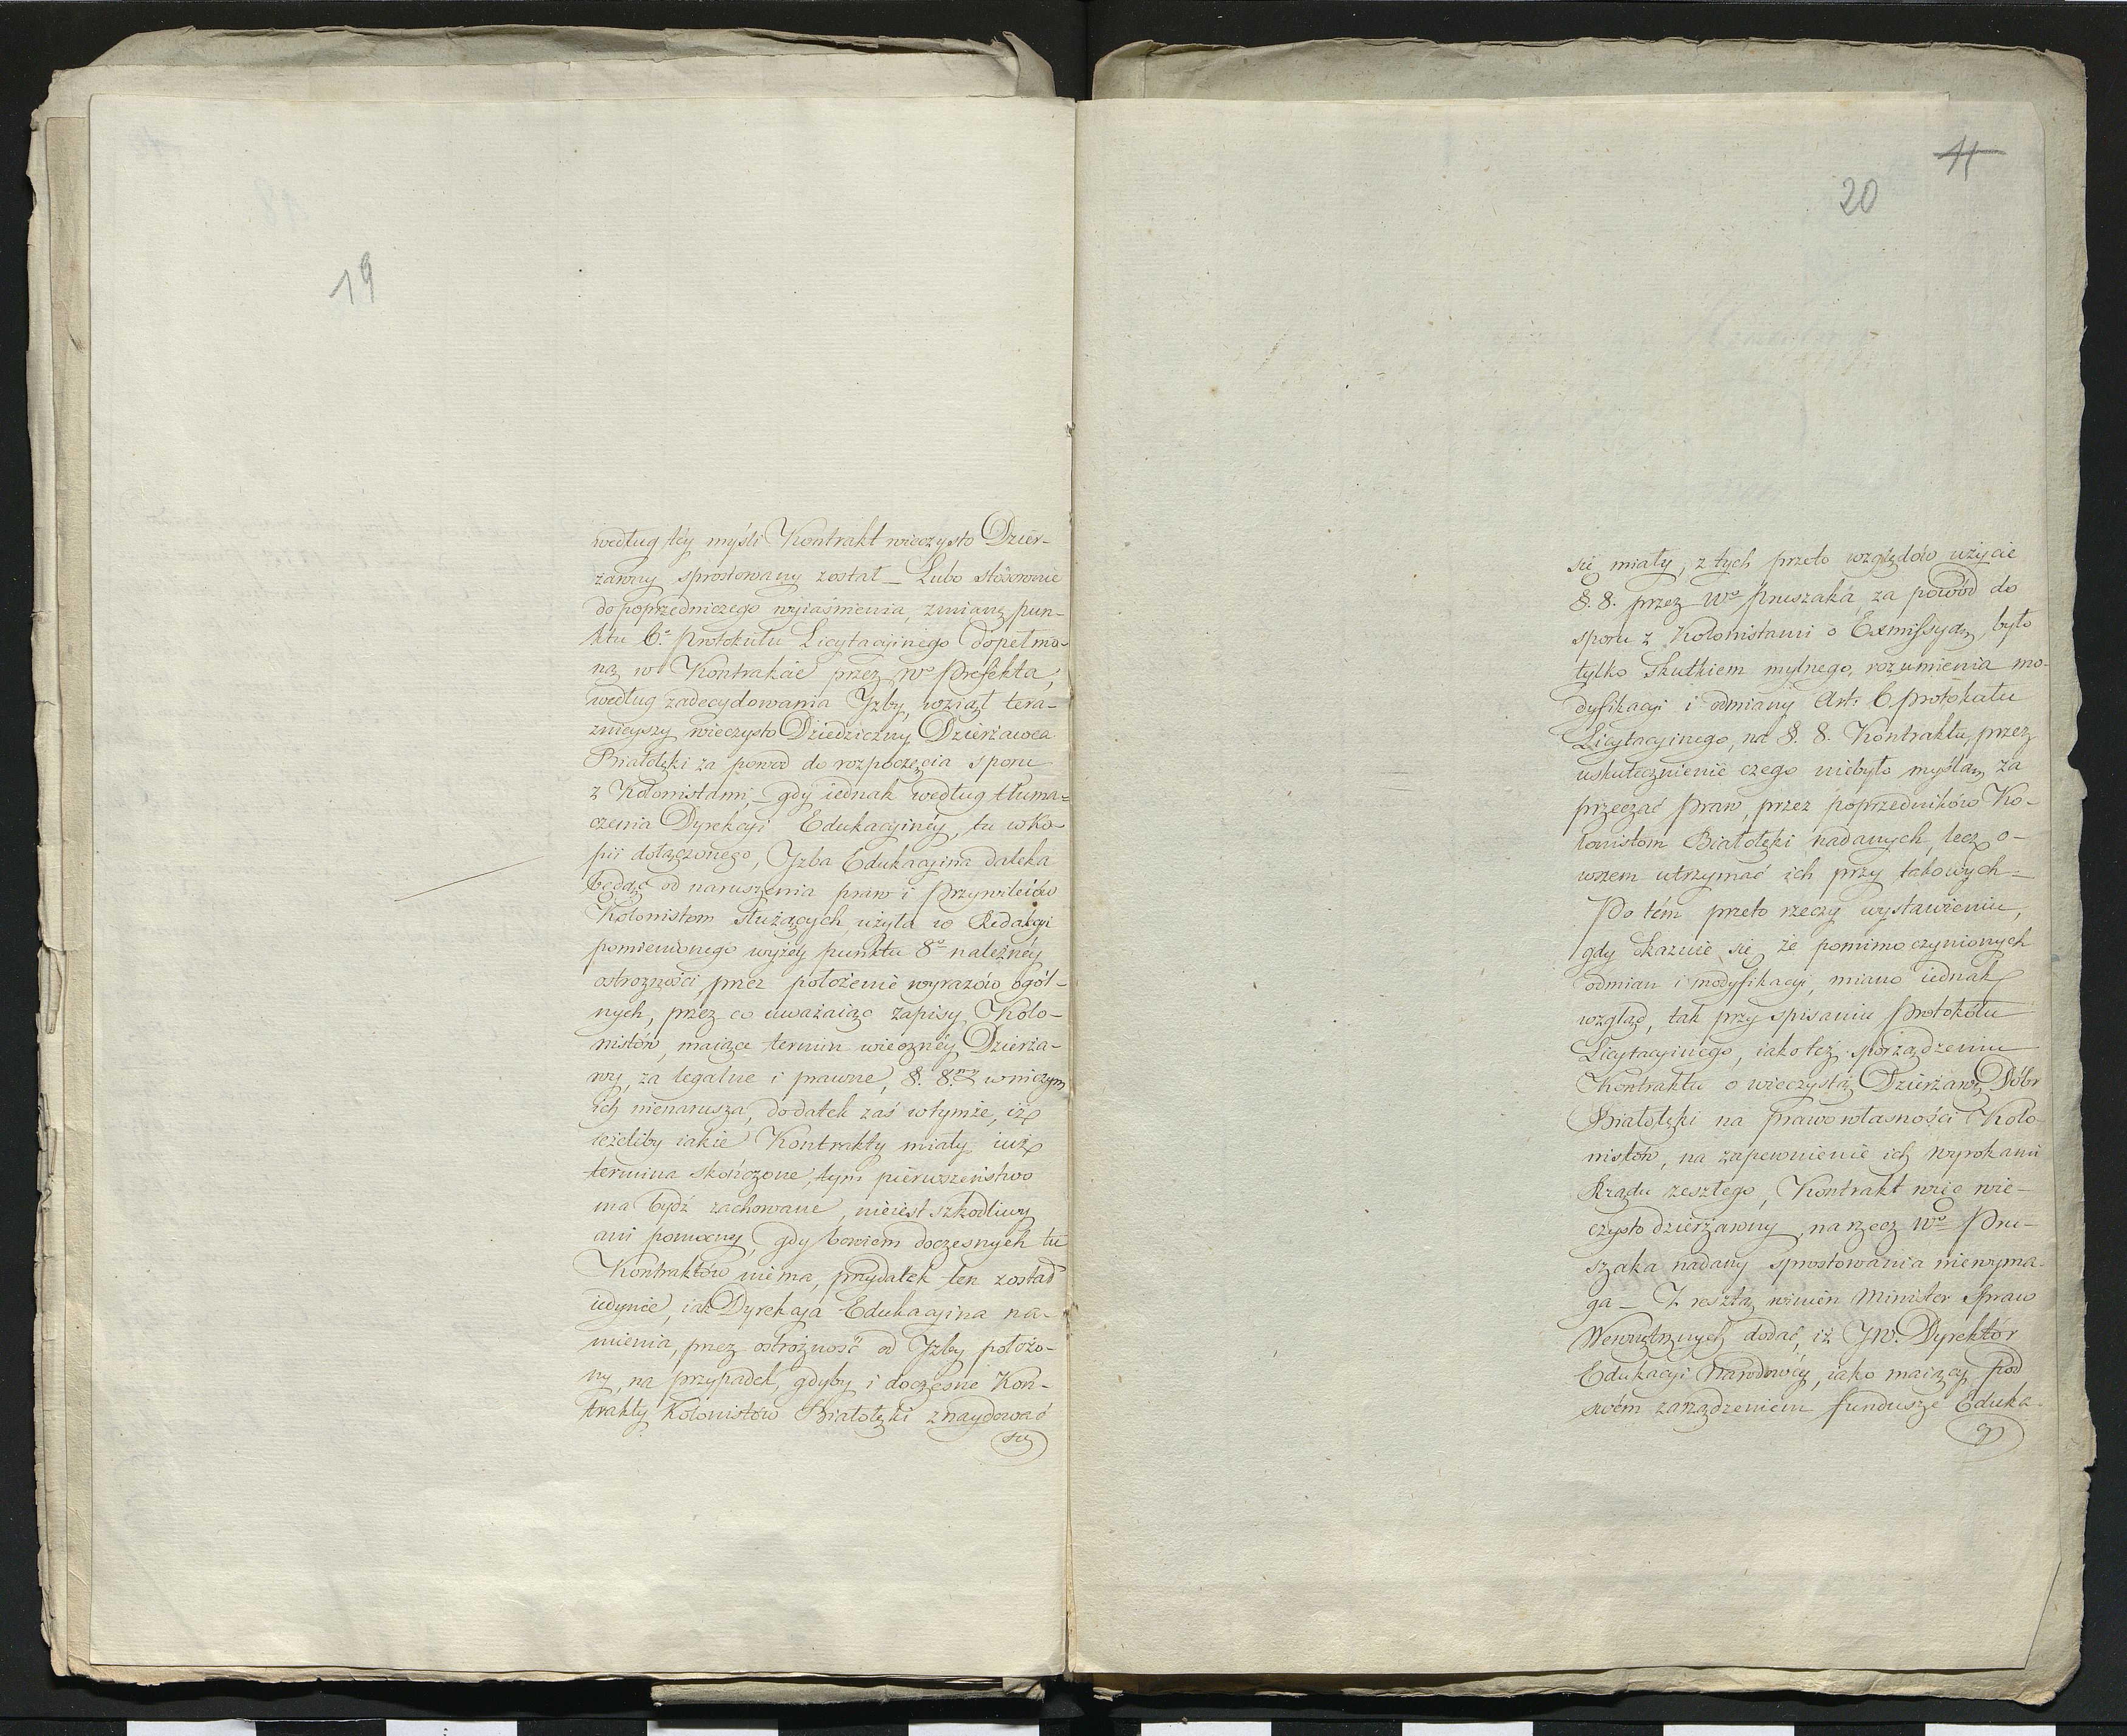 19
według téy myśli Kontrakt wieczysto Dzier-
żawny sprostowany został – Lubo stosownie
do poprzedniczego wyiaśnienia, zmianę pun-
ktu 6º Protokułu Licytacyinego dopełnio-
ną w Kontrakcie przez Wº Prefekta,
według zadecydowania Jzby, wziął tera-
znieyszy wieczysto Dziedziczny Dzierżawca
Białołęki za powod do rozpoczęcia sporu
z Kolonistami, – gdy iednak według tłuma-
czenia Dyrekcyi Edukacyinéy, tu w Ko-
pii dołączonego, Jzba Edukacyina daleka
będąc od naruszenia praw i Przywileiów
Kolonistom służących, użyła w Redakcyi
pomienionego wyżéy punktu 8º należnéy
ostrożności, przez położenie wyrazów ogól-
nych, przez co uważaiąc zapisy Kolo-
nistów, maiące termin wiecznéy Dzierża-
wy, za legalne i prawne, §. 8.my w niczym
ich nienarusza, dodatek zaś w tymże, iż
ieżeliby iakie Kontrakty miały iuż
termina skończone, tym pierwszeństwo
ma bydź zachowane, nieiest szkodliwy
ani pomocny, gdy bowiem doczesnych tu
Kontraktów niema, przydatek ten został
iedynie, iak Dyrekcya Edukacyina na-
mienia, przez ostrożność od Jzby położo-
ny, na przypadek, gdyby i doczesne Kon-
trakty Kolonistów Białołęki znaydować
się
11
20
się miały, z tych przeto względów użycie
§. 8. przez Wº Pruszaka, za powód do
sporu z Kolonistami o Exmissyą, było
tylko skutkiem mylnego, rozumienia mo-
dyfikacyi i odmiany Art: 6 Protokułu
Licytacyinego, na §. 8. Kontraktu, przez
uskutecznienie czego niebyło myślą za
przeczać Praw, przez poprzedników Ko-
lonistom Białołęki nadanych, lecz o-
wszem utrzymać ich przy takowych –
Po tém przeto rzeczy wystawieniu,
gdy okazuie się, że pomimo czynionych
odmian i modyfikacyi, miano iednak
wzgląd, tak przy spisaniu Protokółu
Licytacyinego, iako téż sporządzeniu
Kontraktu o wieczystą Dzierżawę Dóbr
Białołęki na prawo własności Kolo-
nistów, na zapewnienie ich wyrokami
Rządu zeszłego, Kontrakt więc wie-
czysto dzierżawny, na rzecz Wº Pru-
szaka nadany sprostowania niewyma-
ga – Z resztą winien Minister Spraw
Wewnętrznych dodać, iż JW. Dyrektór
Edukacyi Narodowéy, iako maiący pod
swém zarządzeniem fundusze Eduka-
cyi